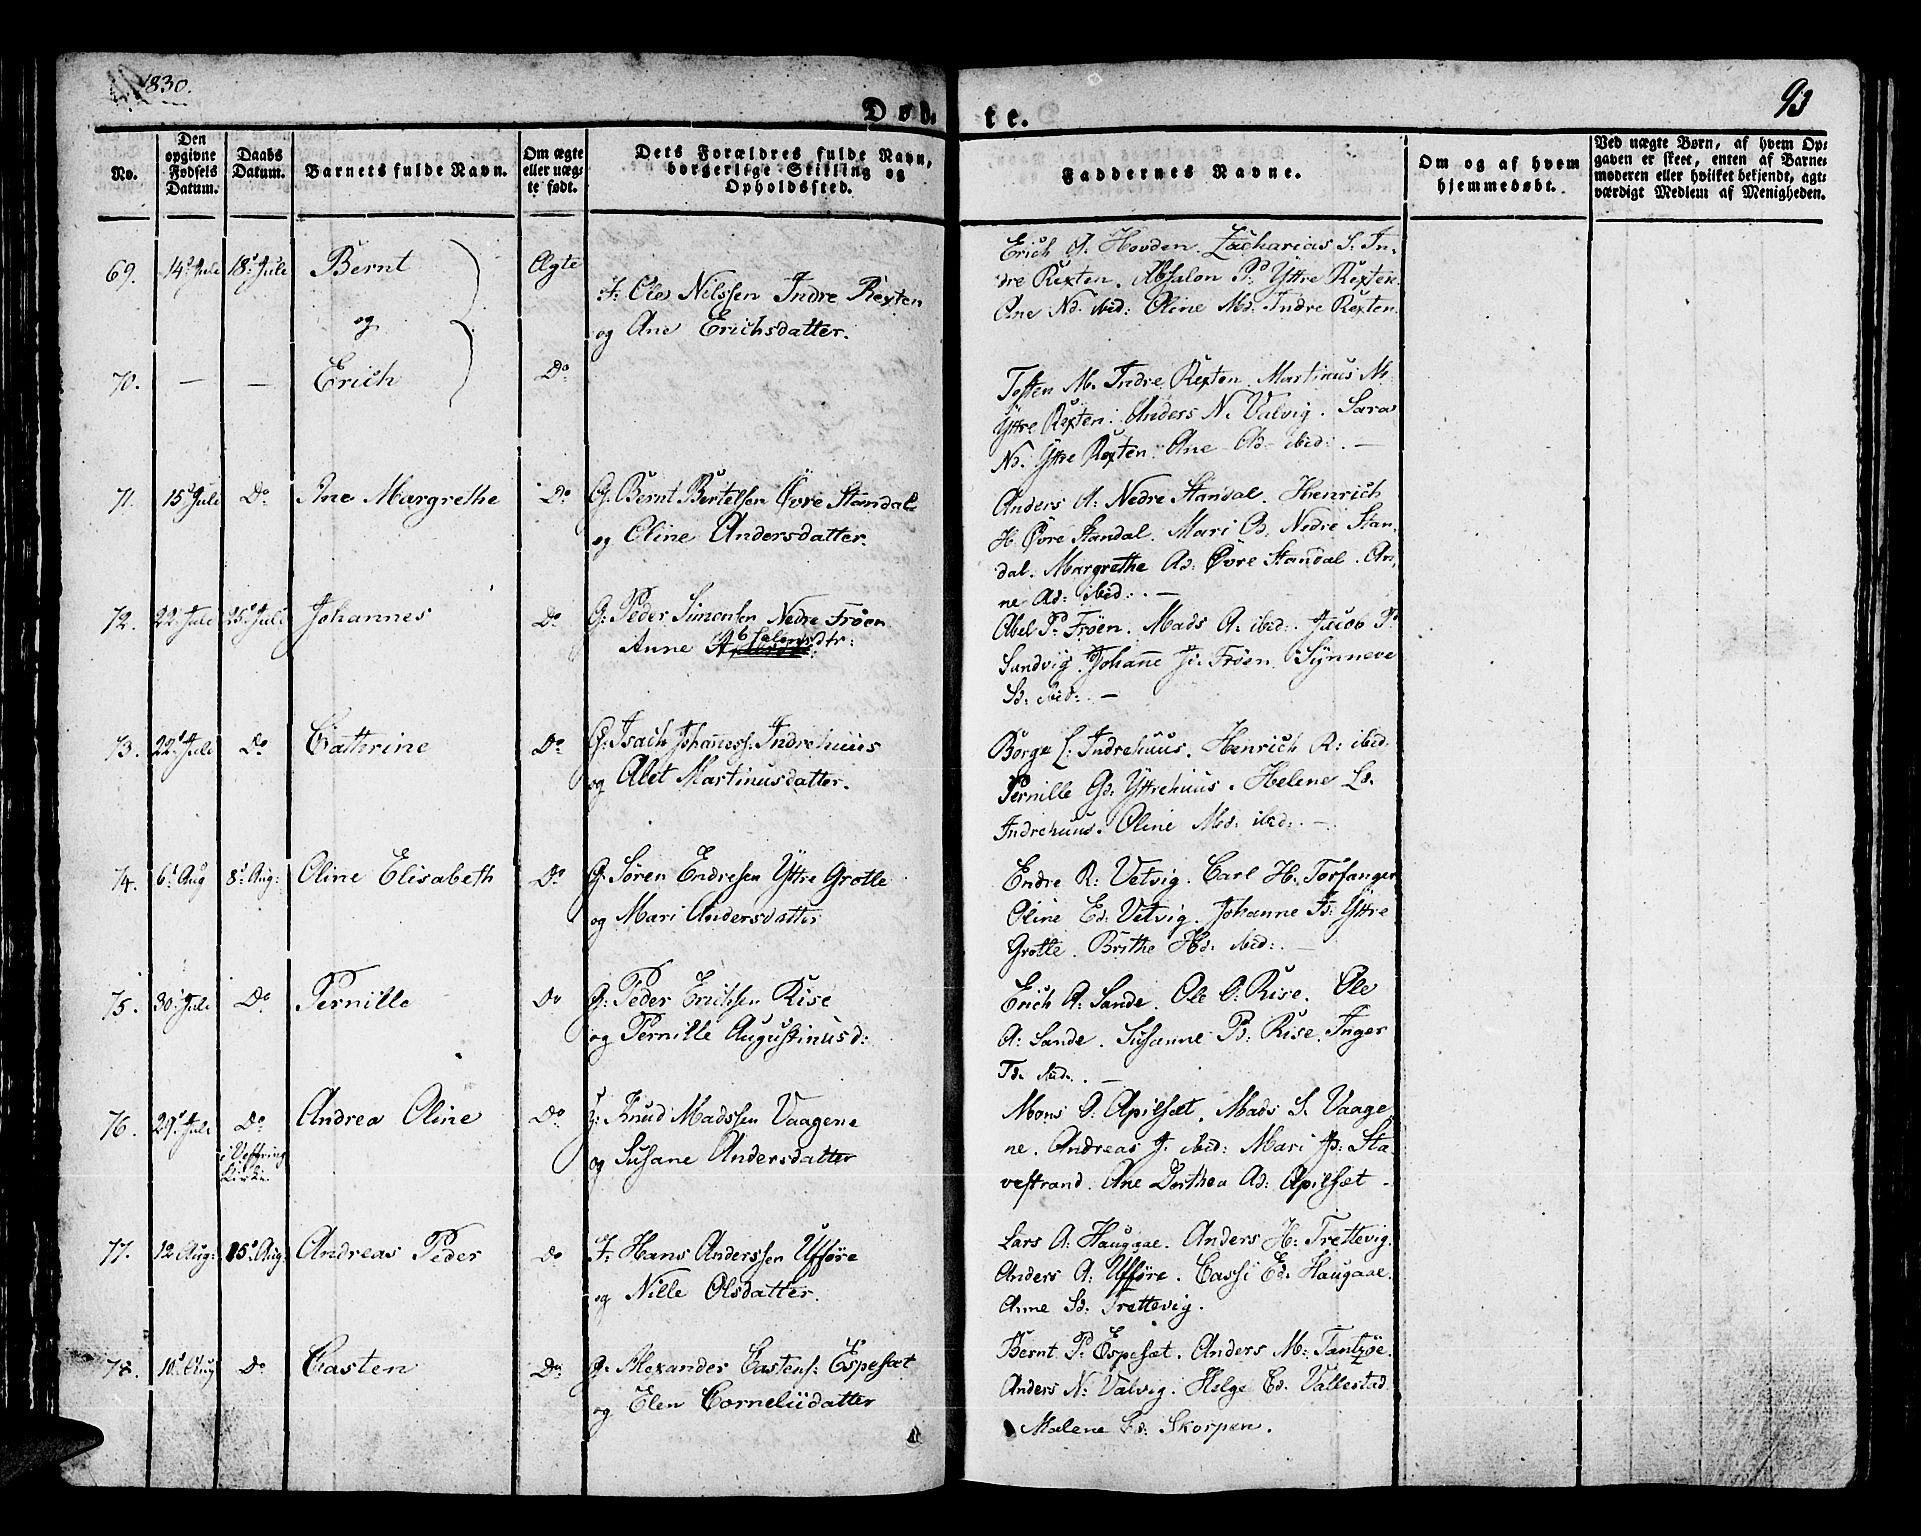 1830.
93
Døb- te.
No.
Den opgivne Fødsels Datum.
Daabs Datum.
Barnets fulde Navn.
Om ægte eller uæg- te født.
Dets Forældres fulde Navn, borgerlige Stilling og Opholdssted.
Faddernes Navne.
Om og af hvem hjemmedøbt.
Ved uægte Børn, af hvem Op-
gaven er skeet, enten af Barne-
moderen eller hvilket bekjendt, agt-
værdigt Medlem af Menigheden.
69. 14d Juli 18d Juli Bernt Ægte
og
F: Ole Nilssen Indre Rexten
og Ane Erichsdatter.
Erich A. Hovden. Zacharias S. In-
dre Rexten. Absalon P: Yttre Rexten.
Ane Nd. ibid: Oline Md. Indre Rexten.
70. — — Erich Do
Tosten M. Indre Rexten. Martinus M:
Yttre Rexten. Anders N. Valvig. Sara
Nd. Yttre Rexten. Ane Ad. ibid: —
71. 15d Juli Do Ane Margrethe Do
G: Bernt Bertelsen Øvre Standal
og Oline Andersdatter.
Anders A: Nedre Standal. Henrich
H. Øvre Standal. Mari Bd. Nedre Stan-
dal. Margrethe Ad: Øvre Standal. An-
ne Ad: ibid: —
72. 22d Juli 25d Juli Johannes Do
G: Peder Simonsen Nedre Frøen
Anne Absalonsdtr:
Abel P: Frøen. Mads A: ibid: Jacob P:
Sundvig. Johanne Jd: Frøen. Synneve
Sd: ibid: —
73. 22d Juli Do Cathrine Do
G: Isach Johaness: Indrehuus
og Alet Martinusdatter.
Børge L: Indrehuus. Henrich R: ibid.
Pernille Gd: Yttrehuus. Helene Ld.
Indrehuus. Oline Md: ibid: —
74. 6d Aug 8d Aug: Oline Elisabeth Do
G. Søren Endresen Yttre Grotle
og Mari Andersdatter
Endre R: Vetvig. Carl H: Torfanger
Oline Ed: Vetvig. Johanne Td: Yttre
Grotle. Brithe Hd: ibid: —
75. 30d Juli Do Pernille Do
G: Peder Erichsen Rise
og Pernille Augustinusd:
Erich A: Sande. Ole O: Rise. Ole
A: Sande. Susanne Pd: Rise. Inger
Td. ibid: —
76. 29d Juli Do
i Vefring
Kirke.
Andrea Oline Do
Knud Madssen Vaagene
og Susane Andersdatter
Mons O: Apilsæt. Mads S. Vaage
ne. Andreas J. ibid: Mari Pd: Sta
vestrand. Ane Dorthea Ad: Apilsæt -
77. 12 Aug: 15d Aug: Andreas Peder Do
F: Hans Anderssen Ufføre
og Nille Olsdatter.
Lars A: Haugaae. Anders H: Trettevig.
Anders A: Ufføre. Cassi Ed. Haugaae.
Anne Sd: Trettevig.
78. 10d Aug Do Casten Do
G: Alexander Castens: Espesæt
og Elen Corneliidatter
Bernt P. Espesæt. Anders M: Tantzøe.
Anders N: Valvig. Helge Ed. Vallestad.
Malene Ed: Skorpen.